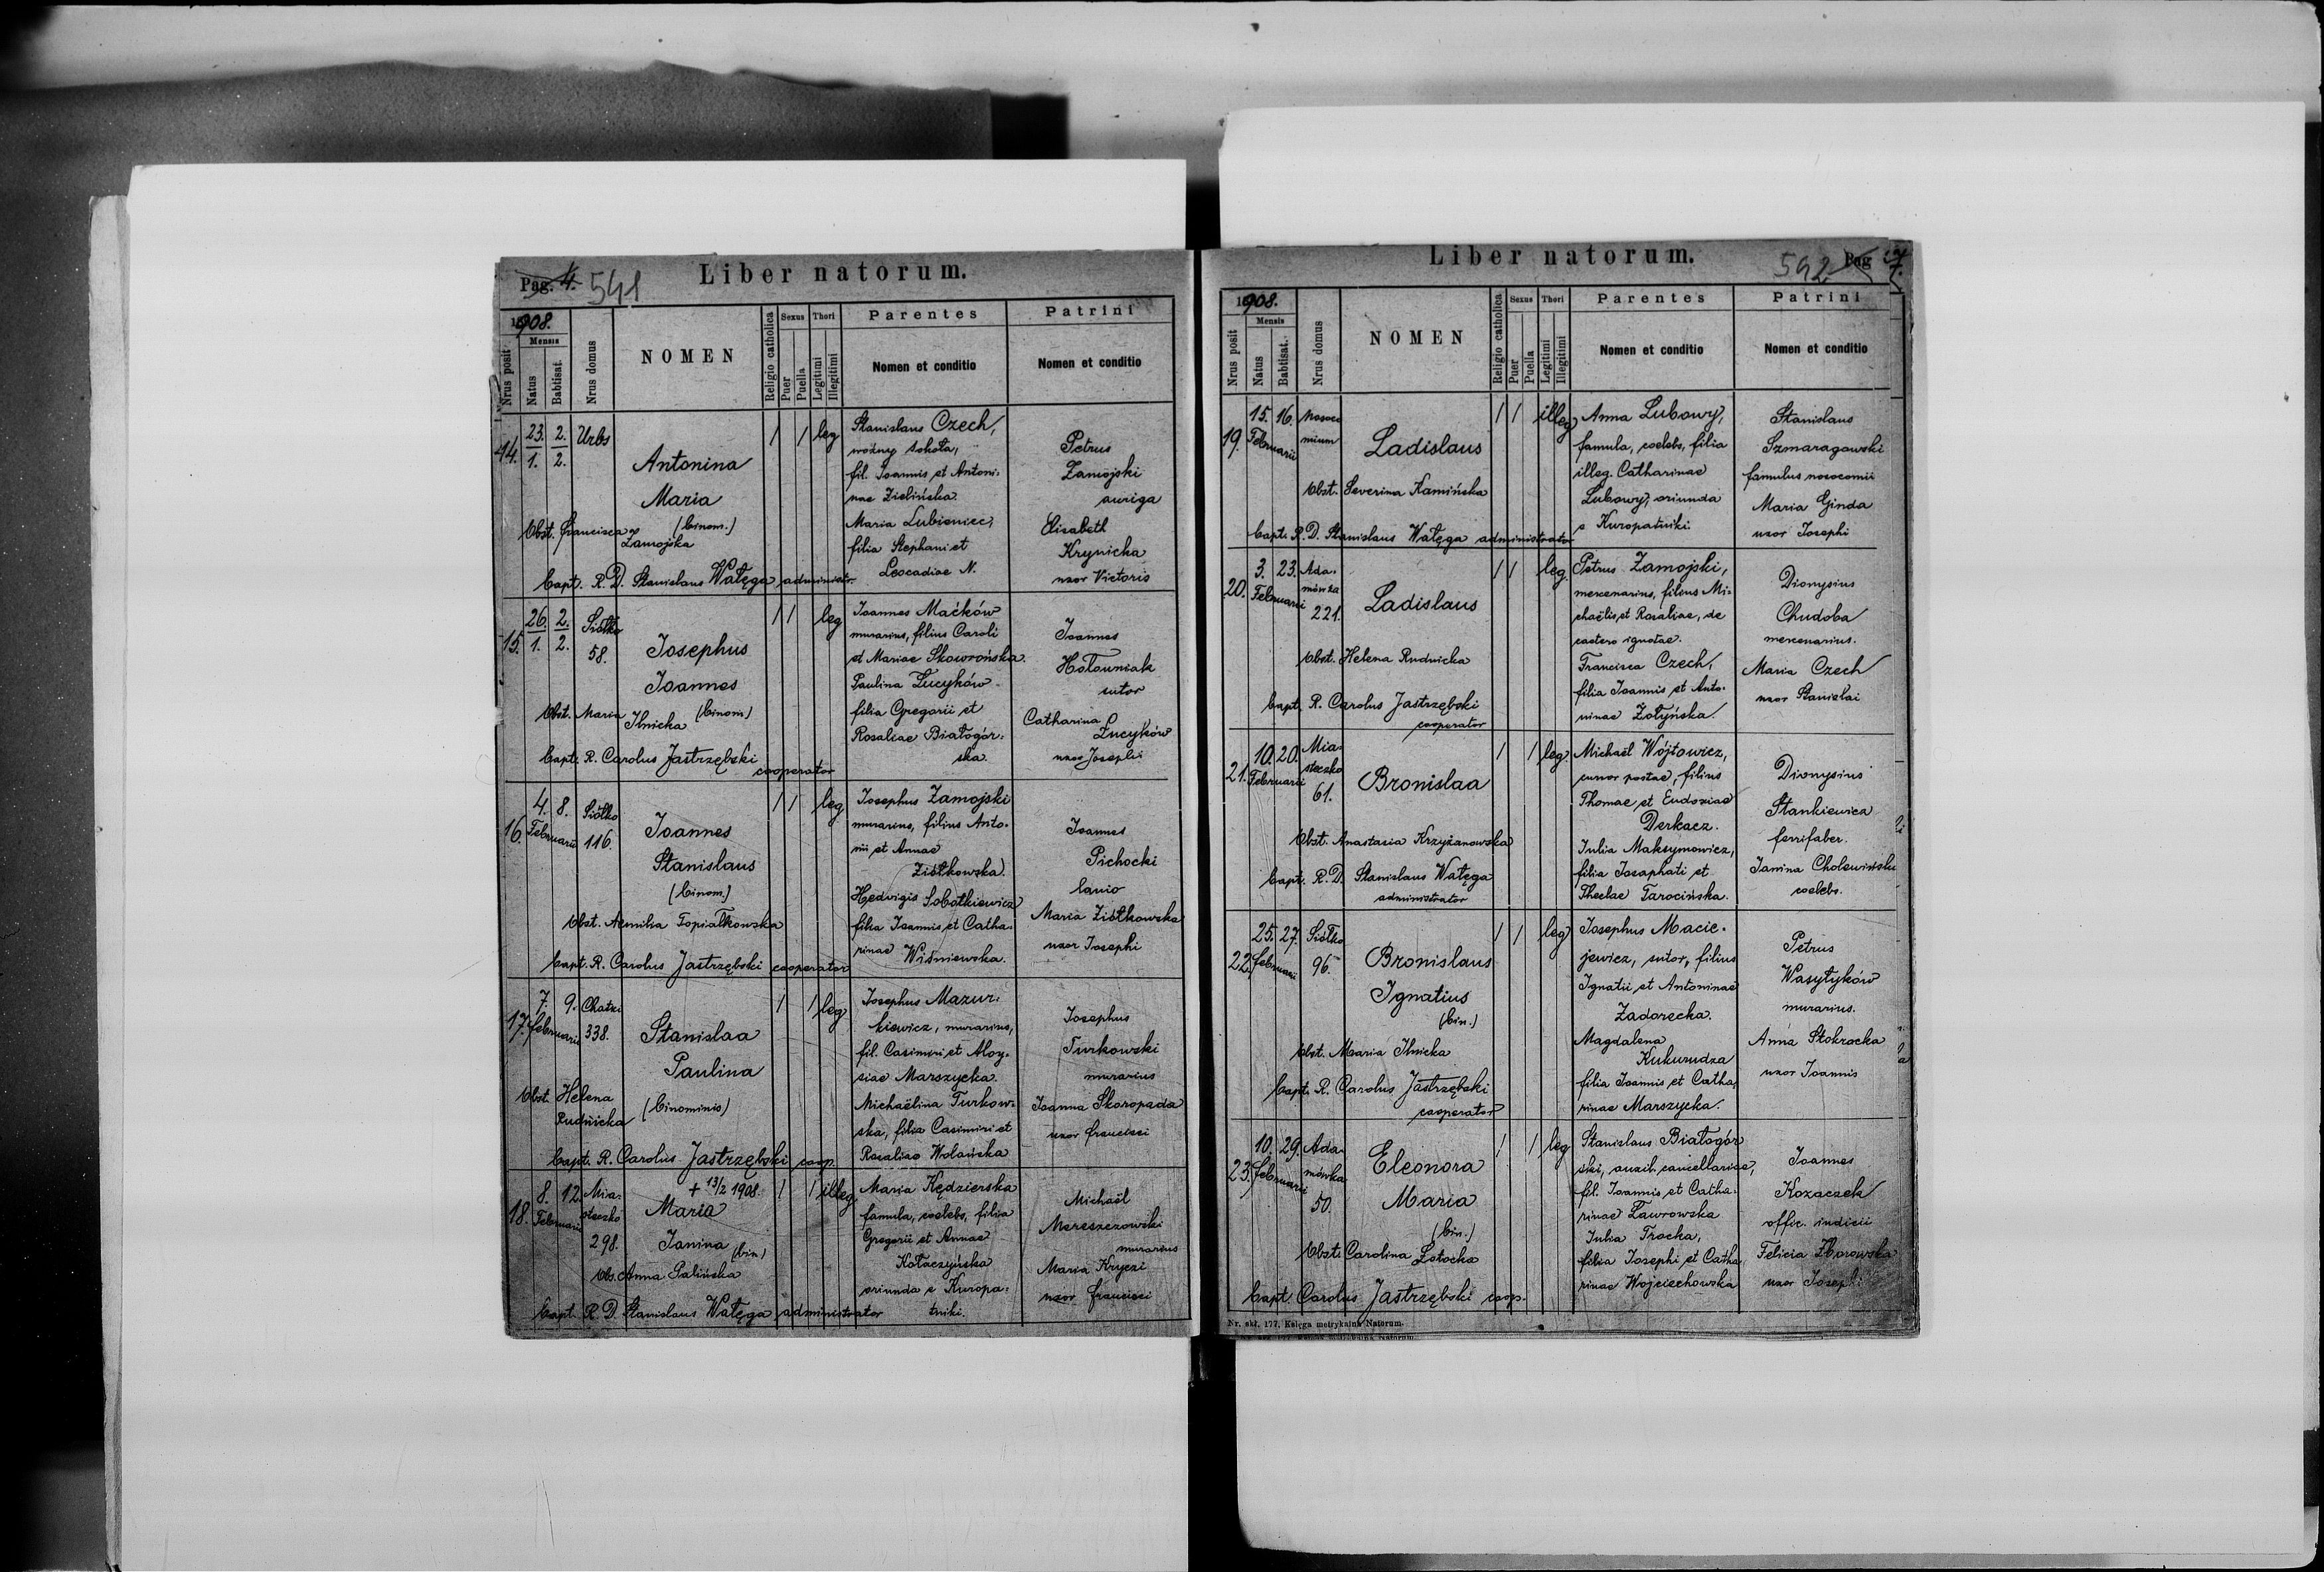 Pag. 4. 541
Liber natorum.
1908.
Mensis
Nrus posit
Natus
Babtisat.
Nrus domus
NOMEN
Religio catholica
Sexus
Puer
Puella
Thori
Legitimi
Illegitimi
Parentes
Nomen et conditio
Patrini
Nomen et conditio
14.
23. 2.
1. 2.
Urbs
Antonina
Maria
(binom.)
Obst. Francisca
Zamojska
bapt. R. D. Stanislaus Wałęga administrator
/ / leg
Stanislaus Czech,
woźny sokoła,
fil. Joannis et Antoni-
nae Zielińska.
Maria Lubieniec,
filia Stephani et
Leocadiae N.
Petrus
Zamojski
auriga
Elisabeth
Krynicka
uxor Victoris
15.
26. 2.
1. 2.
Siółko
58.
Josephus
Joannes
(binom)
Obst. Maria
Ilnicka
bapt. R. Carolus Jastrzębski
cooperator
/ / leg
Joannes Maćków
murarius, filius Caroli
et Mariae Skowrońska.
Paulina Łucyków
filia Gregorii et
Rosaliae Białogór-
ska
Joannes
Hołowniak
sutor
Catharina
Łucyków
uxor Josephi
16.
4. 8.
Februarii
Siółko
116.
Joannes
Stanislaus
(binom.)
Obst. Aemilia Topiałkowska
bapt. R. Carolus Jastrzębski cooperator
/ / leg
Josephus Zamojski
murarius, filius Anto-
nii et Annae
Ziółkowska.
Hedvigis Sobotkiewicz
filia Joannis et Catha-
rinae Wiśniewska.
Joannes
Pichocki
lanio
Maria Ziółkowska
uxor Josephi
17.
7. 9.
Februarii
Chatki
338.
Stanislaa
Paulina
(binominis)
Obst. Helena
Rudnicka
bapt. R. Carolus Jastrzębski coop.
/ / leg
Josephus Mazur-
kiewicz, murarius,
fil. Casimiri et Aloy-
siae Marszycka.
Michaëlina Turkow-
ska, filia Casimiri et
Rosaliae Wolańska
Josephus
Turkowski
murarius
Joanna Skoropada
uxor Francisci
18.
8. 12.
Februarii
Mia-
steczko
298.
+ 13/2 1908.
Maria
Janina (bin)
Obs. Anna Salińska
bapt. R. D. Stanislaus Wałęga administrator
/ / illeg
Maria Kędzierska
famula, coelebs, filia
Gregorii et Annae
Kołaczyńska
oriunda e Kuropa-
tniki.
Michaël
Mereszczowski
murarius
Maria Kryczi
uxor Francisci
Liber natorum.
542 Pag
1908.
Mensis
Nrus posit
Natus
Babtisat.
Nrus domus
NOMEN
Religio catholica
Sexus
Puer
Puella
Thori
Legitimi
Illegitimi
Parentes
Nomen et conditio
Patrini
Nomen et conditio
19.
15. 16.
Februarii
Nosoco
mium
Ladislaus
Obst. Severina Kamińska
bapt. R. D. Stanislaus Wałęga administrator
/ / illeg
Anna Lubowy,
famula, coelebs, filia
illeg. Catharinae
Lubowy, oriunda
e Kuropatniki.
Stanislaus
Szmaragowski
famulus nosocomii
Maria Ginda
uxor Josephi
20.
3. 23.
Februarii
Ada-
mówka
221.
Ladislaus
Obst. Helena Rudnicka
bapt. R. Carolus Jastrzębski
cooperator
/ / leg.
Petrus Zamojski,
mercenarius, filius Mi-
chaëlis et Rosaliae, de
caetero ignotae.
Francisca Czech,
filia Joannis et Anto-
ninae Żołyńska.
Dionysius
Chudoba
mercenarius.
Maria Czech
uxor Stanislai
21.
10. 20.
Februarii
Mia-
steczko
61.
Bronislaa
Obst. Anastasia Krzyżanowska
bapt. R. D. Stanislaus Wałęga
administrator
/ / leg.
Michaël Wójtowicz,
cursor postae, filius
Thomae et Eudoxiae
Derkacz.
Julia Maksymowicz,
filia Josaphati et
Theclae Tarocińska.
Dionysius
Stankiewicz
ferrifaber.
Janina Cholewińska
coelebs.
22.
25. 27.
Februarii
Siółko
96.
Bronislaus
Ignatius
(bin.)
Obst. Maria Ilnicka
bapt. R. Carolus Jastrzębski
cooperator
/ / leg
Josephus Macie-
jewicz, sutor, filius
Ignatii et Antoninae
Zadorecka.
Magdalena
Kukurudza
filia Joannis et Catha-
rinae Marszycka.
Petrus
Wasylyków
murarius.
Anna Stokrocka
uxor Joannis
23.
10. 29.
Februarii
Ada-
mówka
50.
Eleonora
Maria
(bin.)
Obst. Carolina Łotocka
bapt. Carolus Jastrzębski coop.
/ / leg
Stanislaus Białogór
ski, auxil. cancellariae,
fil. Joannis et Catha-
rinae Ławrowska
Julia Trocka,
filia Josephi et Catha
rinae Wojciechowska
Joannes
Kozaczek
offic. iudicii
Felicia Zborowska
uxor Josephi
Nr. skł. 177. Księga metrykalna Natorum.